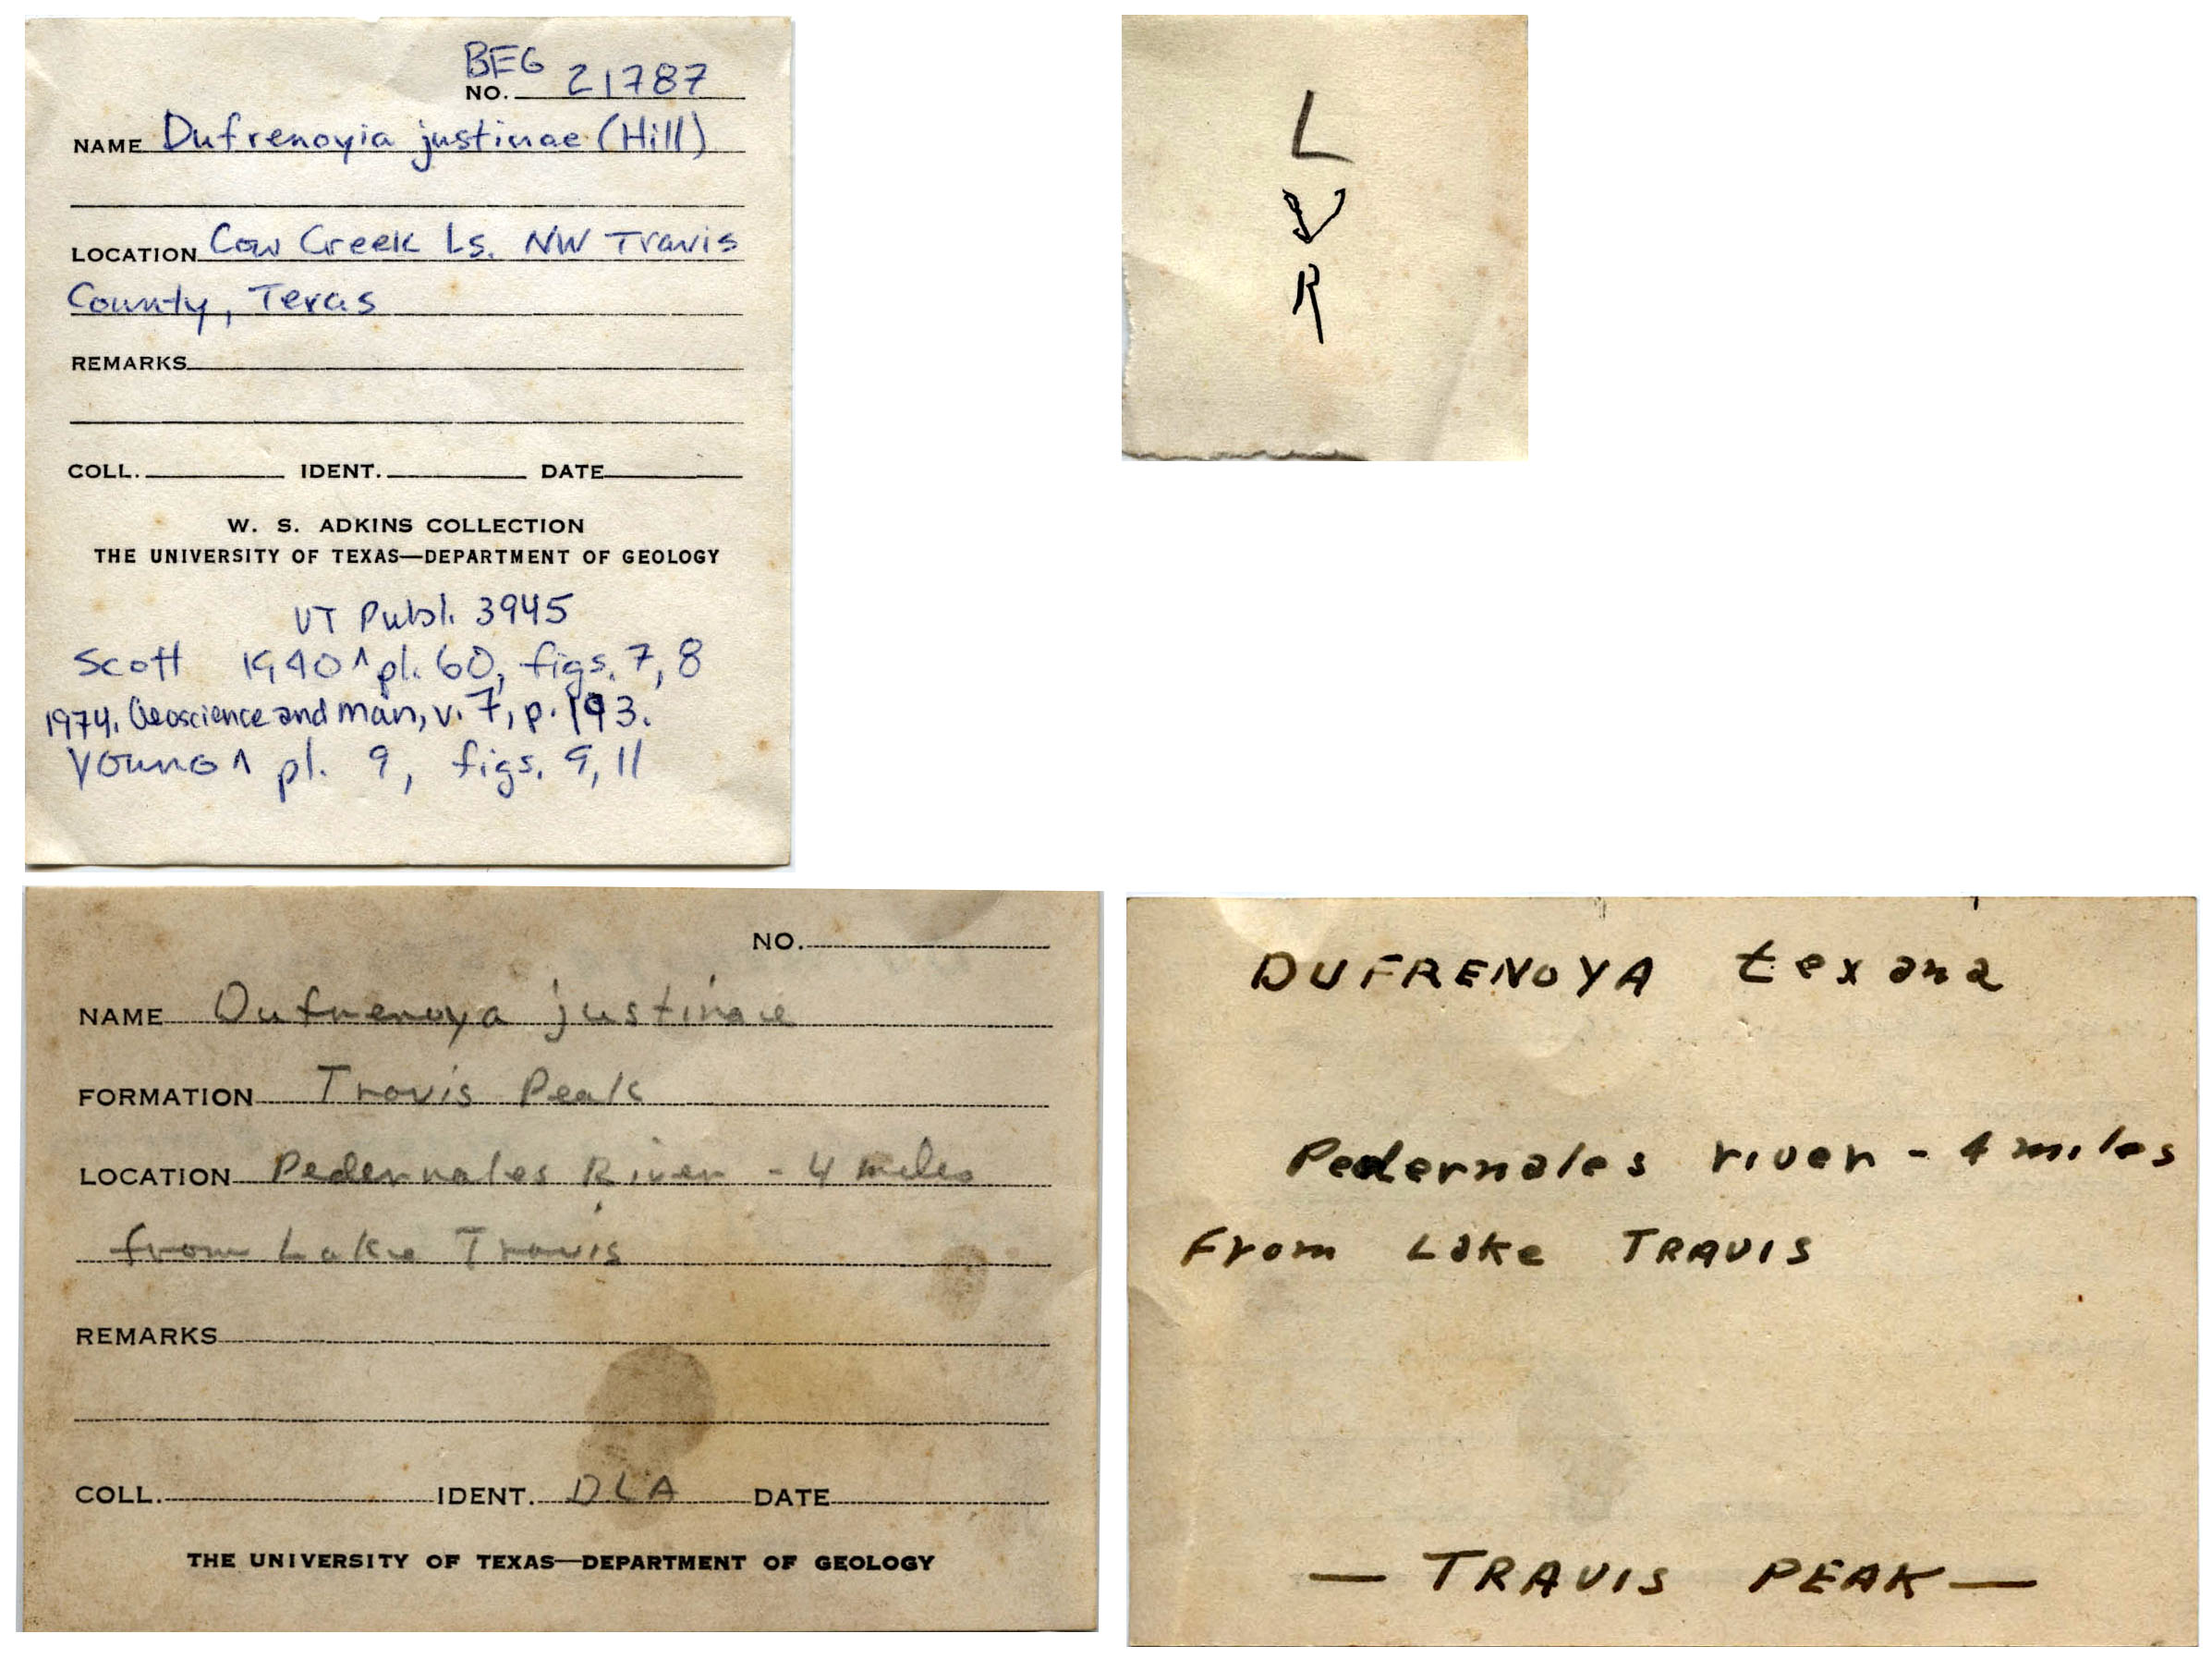 BEG
NO. 21787
NAME Dufrenoyia justinae (Hill)
LOCATION Cow Creek Ls. NW Travis
County, Texas
REMARKS
COLL. IDENT. DATE
W. S. ADKINS COLLECTION
THE UNIVERSITY OF TEXAS—DEPARTMENT OF GEOLOGY
UT Publ. 3945
Scott 1940 ^ pl. 60, figs. 7, 8
1974. Geoscience and Man, v. 7, p. 193.
Young ^ pl. 9, figs. 9, 11
L
R
NO.
NAME Dufrenoya justinae
FORMATION Travis Peak
LOCATION Pedernales River - 4 miles
from Lake Travis
REMARKS
COLL. IDENT. DLA DATE
THE UNIVERSITY OF TEXAS—DEPARTMENT OF GEOLOGY
DUFRENOYA texana
Pedernales river - 4 miles
From Lake TRAVIS
— TRAVIS PEAK —